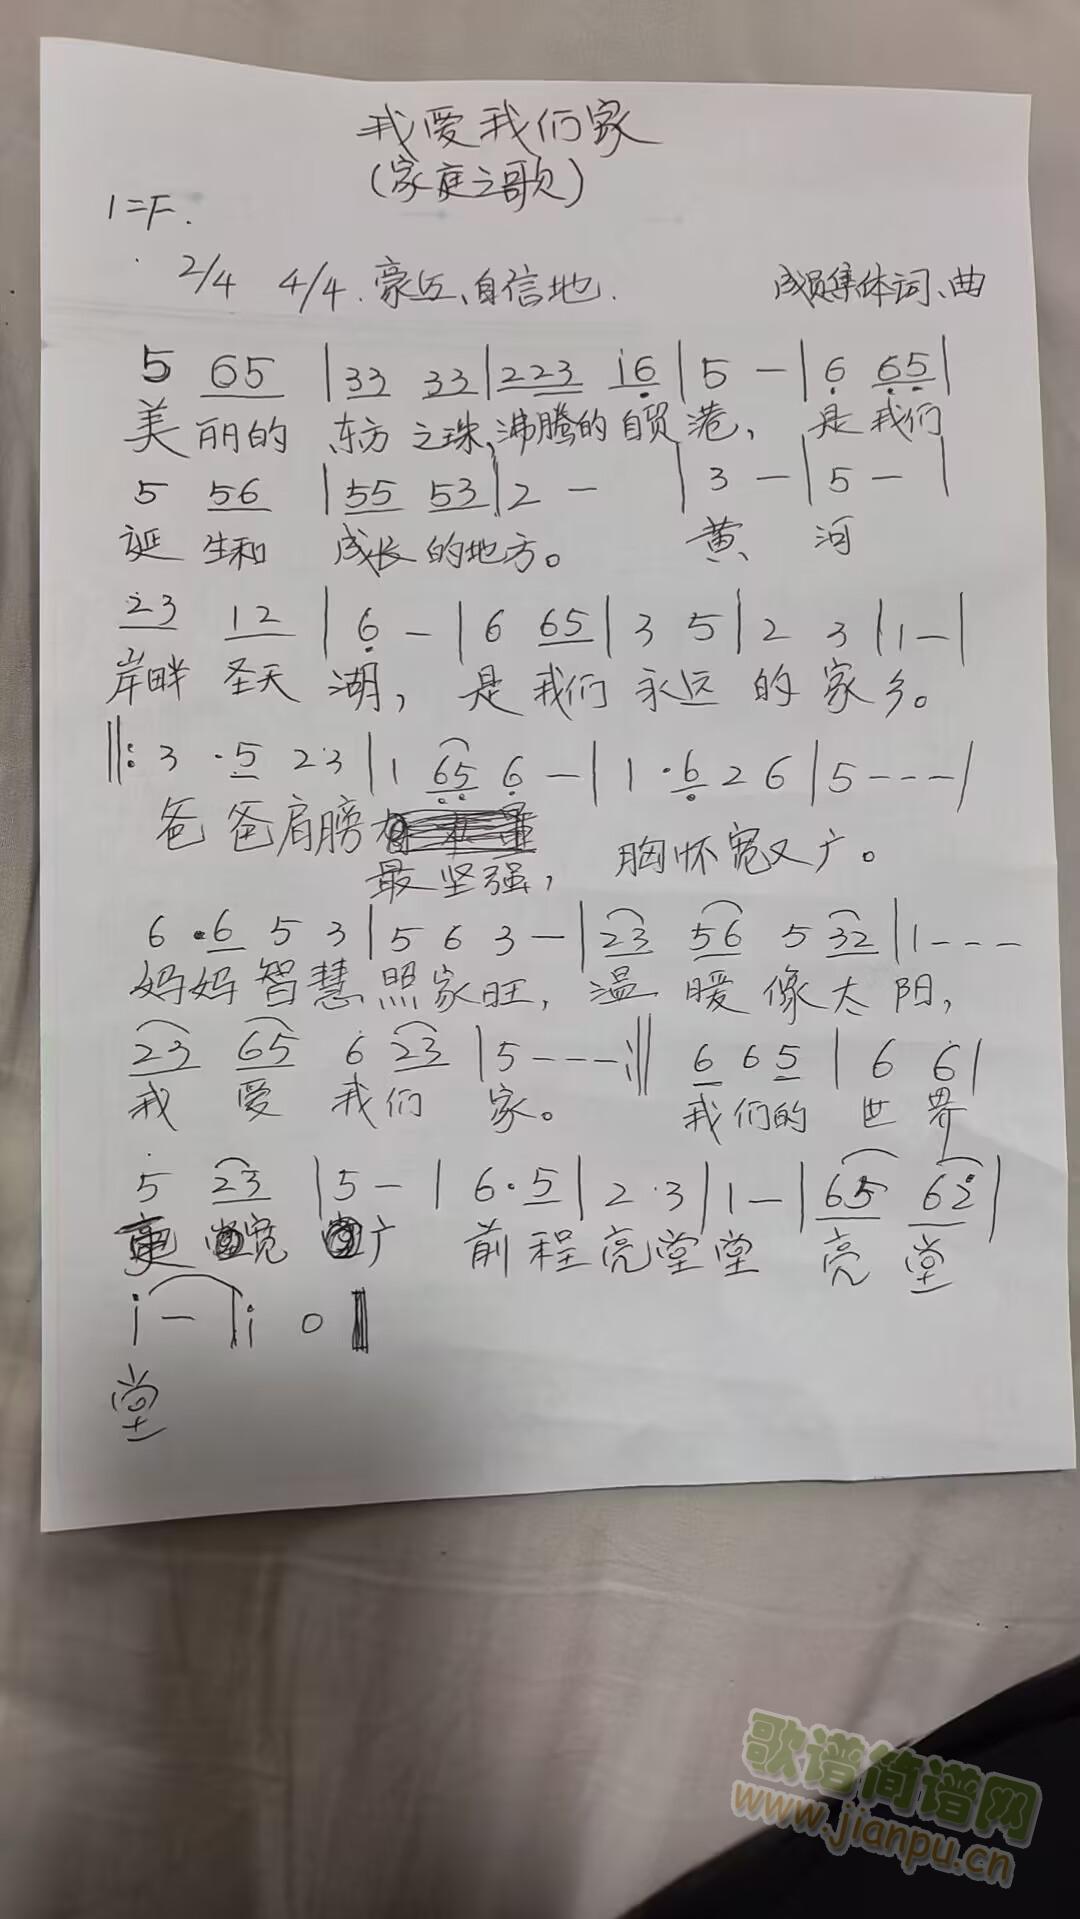 我爱我们家
(家庭之歌)
1=F.
2/4 4/4. 豪迈、自信地. 成员集体词、曲
5 65 |33 33|223 i6|5 —|6 65|
美 丽的 东方 之珠,沸腾的 自贸 港, 是 我们
5 56 |55 53|2 — |3 —|5 — |
诞 生和 成长 的地方。 黄 河
23 12 |6 —|6 65|3 5|2 3|1—|
岸畔 圣天 湖, 是 我们 永远 的 家乡。
‖: 3 ·5 23|1 65 6 —|1·6 2 6|5 - - -|
爸 爸肩膀
最坚强, 胸怀宽又广。
6 ·6 5 3|5 6 3 —|23 56 5 32|1 - - -
妈妈智慧 照家旺, 温 暖 像太 阳,
23 65 6 23 |5 - - - :‖ 6 6 5 | 6 6|
我 爱 我们 家。 我们的 世 界
5 23 |5 — | 6·5|2·3|1 —|65 62|
更 宽 广 前程亮堂堂 亮 堂
i — |i 0‖
堂
歌谱简谱网
www.jianpu.cn